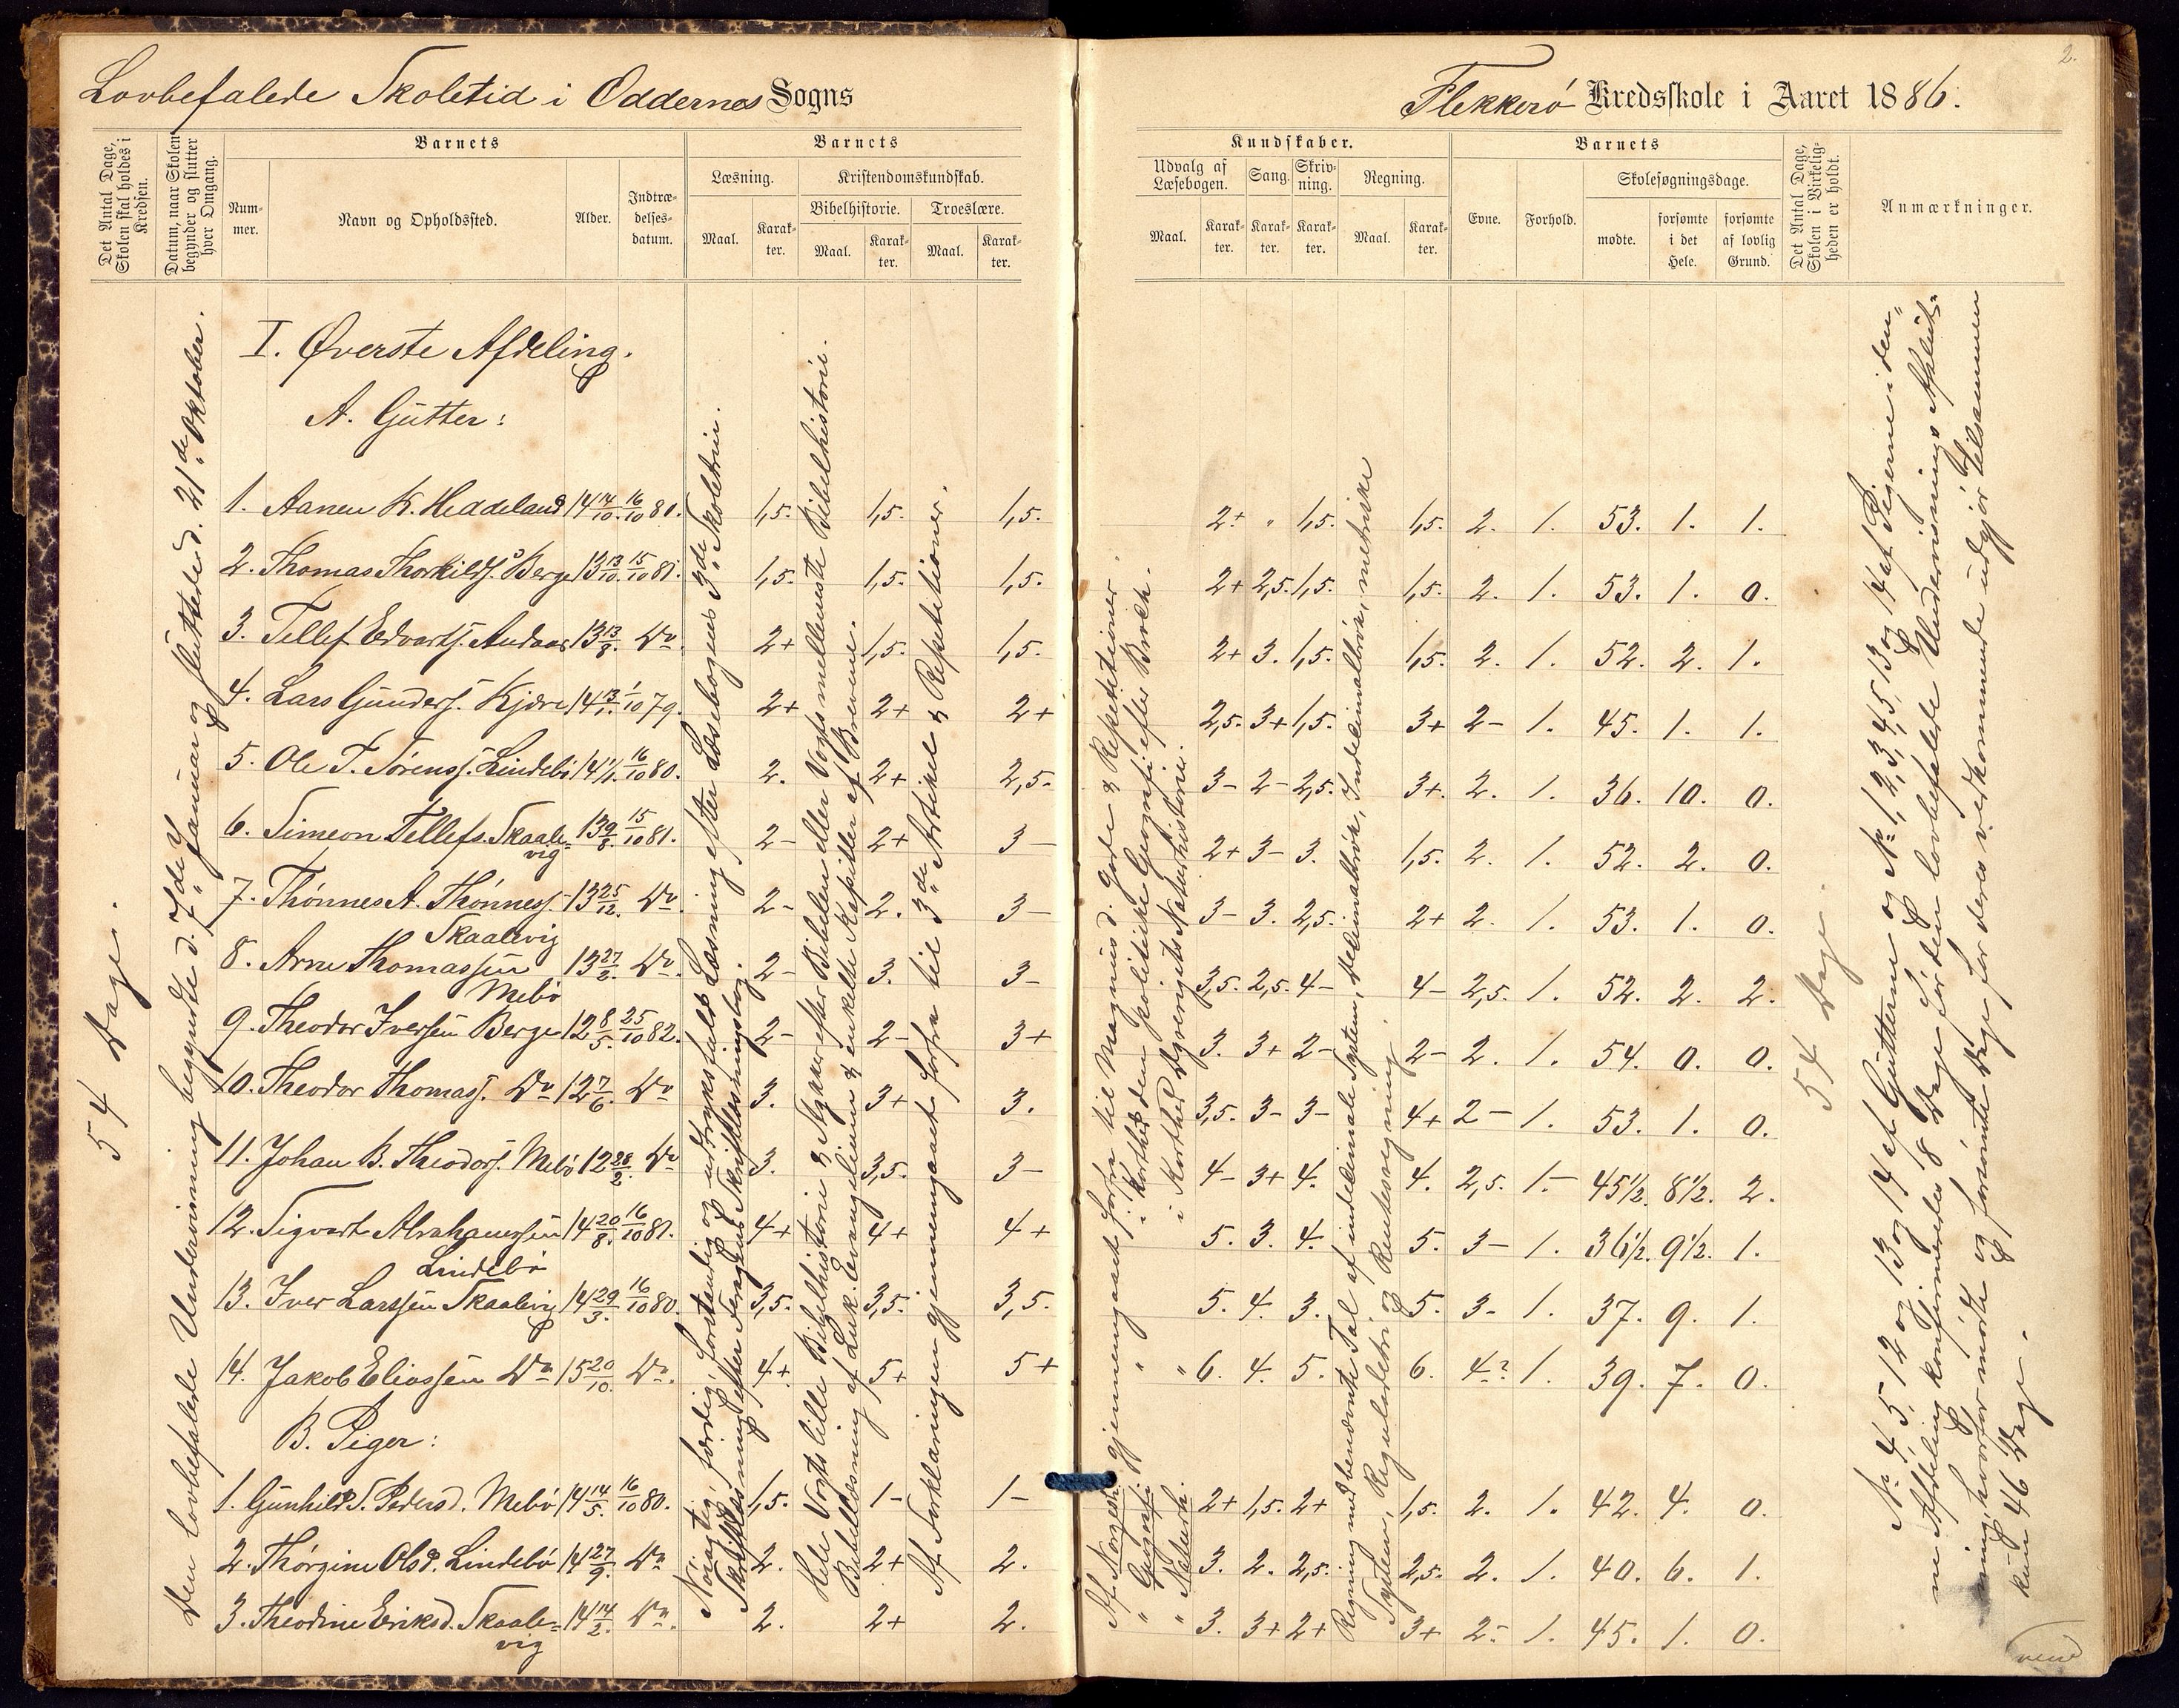 Lovbefalede Skoletid i Oddernes Sogns
Flekkerö Kredsskole i Aaret 1886.
2.
Det Antal Dage, Skolen skal holdes i Kredsen.
Datum, naar Skolen begynder og slutter hver Omgang.
Barnets
Nummer.
Navn og Opholdssted.
Alder.
Indtrædelsesdatum.
Barnets
Læsning.
Maal.
Karakter.
Kristendomskundskab.
Bibelhistorie.
Maal.
Karakter.
Troeslære.
Maal.
Karakter.
Kundskaber.
Udvalg af Læsebogen.
Maal.
Karakter.
Sang.
Karakter.
Skrivning.
Karakter.
Regning.
Maal.
Karakter.
Barnets
Evne.
Forhold.
Skolesøgningsdage.
mødte.
forsømte i det Hele.
forsømte af lovlig Grund.
Det Antal Dage, Skolen i Virkeligheden er holdt.
Anmærkninger.
54 Dage.
Den lovbefalede Undervisning begyndte d. 7de Januar og sluttede d. 21de Oktober.
I. Øverste Afdeling.
A. Gutter:
1. Aanen K. Heddeland 14 14/10. 16/10 80. 1,5. 1,5. 1,5. 2+ " 1,5. 1,5. 2. 1. 53. 1. 1.
2. Thomas Thorkilds. Berge 13 13/10. 15/10 81. 1,5. 1,5. 1,5. 2+ 2,5. 1,5. 1,5. 2. 1. 53. 1. 0.
3. Tellef Edvards. Andaas 13 13/8. Do. 2+ 1,5. 1,5. 2+ 3. 1,5. 1,5. 2. 1. 52. 2. 1.
4. Lars Gunders. Kjære 14 13/1. 1/10 79. 2+ 2+ 2+ 2,5. 3+ 1,5. 3+ 2- 1. 45. 1. 1.
5. Ole T. Sörenss. Lindebö 14 1/1. 16/10 80. 2. 2+ 2,5. 3- 2- 2,5. 3+. 2. 1. 36. 10. 0.
6. Simeon Tellefs. Skaalevig 13 9/8. 15/10 81. 2- 2+ 3- 2+ 3- 3. 1,5. 2. 1. 52. 2. 0.
7. Thönnes A. Thönness. Skaalevig 13 25/12. Do. 2- 2. 3- 3- 3. 2,5. 2+ 2. 1. 53. 1. 0.
8. Arne Thomassen Mebö 13 27/2. Do. 2- 3. 3- 3,5. 2,5. 4- 4- 2,5. 1. 52. 2. 2.
9. Theodor Iversen Berge 12 8/5. 25/10 82. 2- 2- 3+ 3. 3+ 2- 2- 2. 1. 54. 0. 0.
10. Theodor Thomass. Do 12 7/6. Do 3. 3+ 3. 3,5. 3- 3- 4+ 2- 1. 53. 1. 0.
11. Johan B. Theodors. Mebö 12 28/2. Do 3. 3,5. 3- 4- 3+ 4. 4. 2,5. 1- 45 1/2. 8 1/2. 2.
12. Sigvart Abrahamssen Lindebö 14 20/8. 16/10 81. 4+ 4+ 4+ 5. 3. 4. 5. 3- 1. 36 1/2. 9 1/2. 1.
13. Iver Larssen Skaalevig 14 29/3. 16/10 80. 3,5. 3,5. 3,5. 5. 4. 3. 5. 3- 1. 37. 9. 1.
14. Jakob Eliassen Do 15 20/10. Do. 4+ 5+ 5+ 6. 4. 5. 6. 4? 1. 39. 7. 0.
B. Piger:
1. Gunhild S. Pedersd. Mebö 14 14/5. 16/10 80. 1,5. 1- 1- 2+ 1,5. 2+ 1,5. 2. 1. 42. 4. 0.
2. Thörgine Olsd. Lindebö 14 27/9. Do 2. 2+ 2. 3. 2. 2,5. 2,5. 2. 1. 40. 6. 1.
3. Theodine Eriksd. Skaalevig 14 14/2. Do. 2. 2+ 2. 3. 3+ 2+ 3+ 2- 1. 45. 1. 0.
Nöiagtig, færdig, forstandig og udtryksfuld Læsning efter Læsebogens 3de Skoletrin.
Skriftlæsning efter Skriftlæsningsbog.
Hele Vogts lille Bibelhistorie & Stykker efter Bibelen eller Vogts mellemste Bibelhistorie.
Bibellæsning af Luk. Evangelium & enkelte Kapitler af Brevene.
Af Forklaringen gjennemgaaet forfra til 3de Artikel & Repetitioner.
Af Norgesh. gjennemgaaet forfra til Magnus d. Gode & Repetitioner.
" Geografi " i Korthed den politiske Geografi efter Broch.
" Naturh. " i Korthed Dyrerigets Naturhistorie.
Regning med benævnte Tal af indecimale System, Decimalbrök, Indecimalbrök, metriske
System, Reguladetri og Rentesregning.
54 Dage.
Nr. 4, 5, 12 og 13 og 14 af Gutterne og Nr. 1, 2, 3, 4, 5, 13 og 14 af Pigerne i denne
Afdeling konfirmeredes 8 Dage för den lovbefalede Undervisnings Afslutning,
hvorfor mödte og forsömte Dage for deres vedkommende udgjör tilsammen
kun 46 Dage.
vend